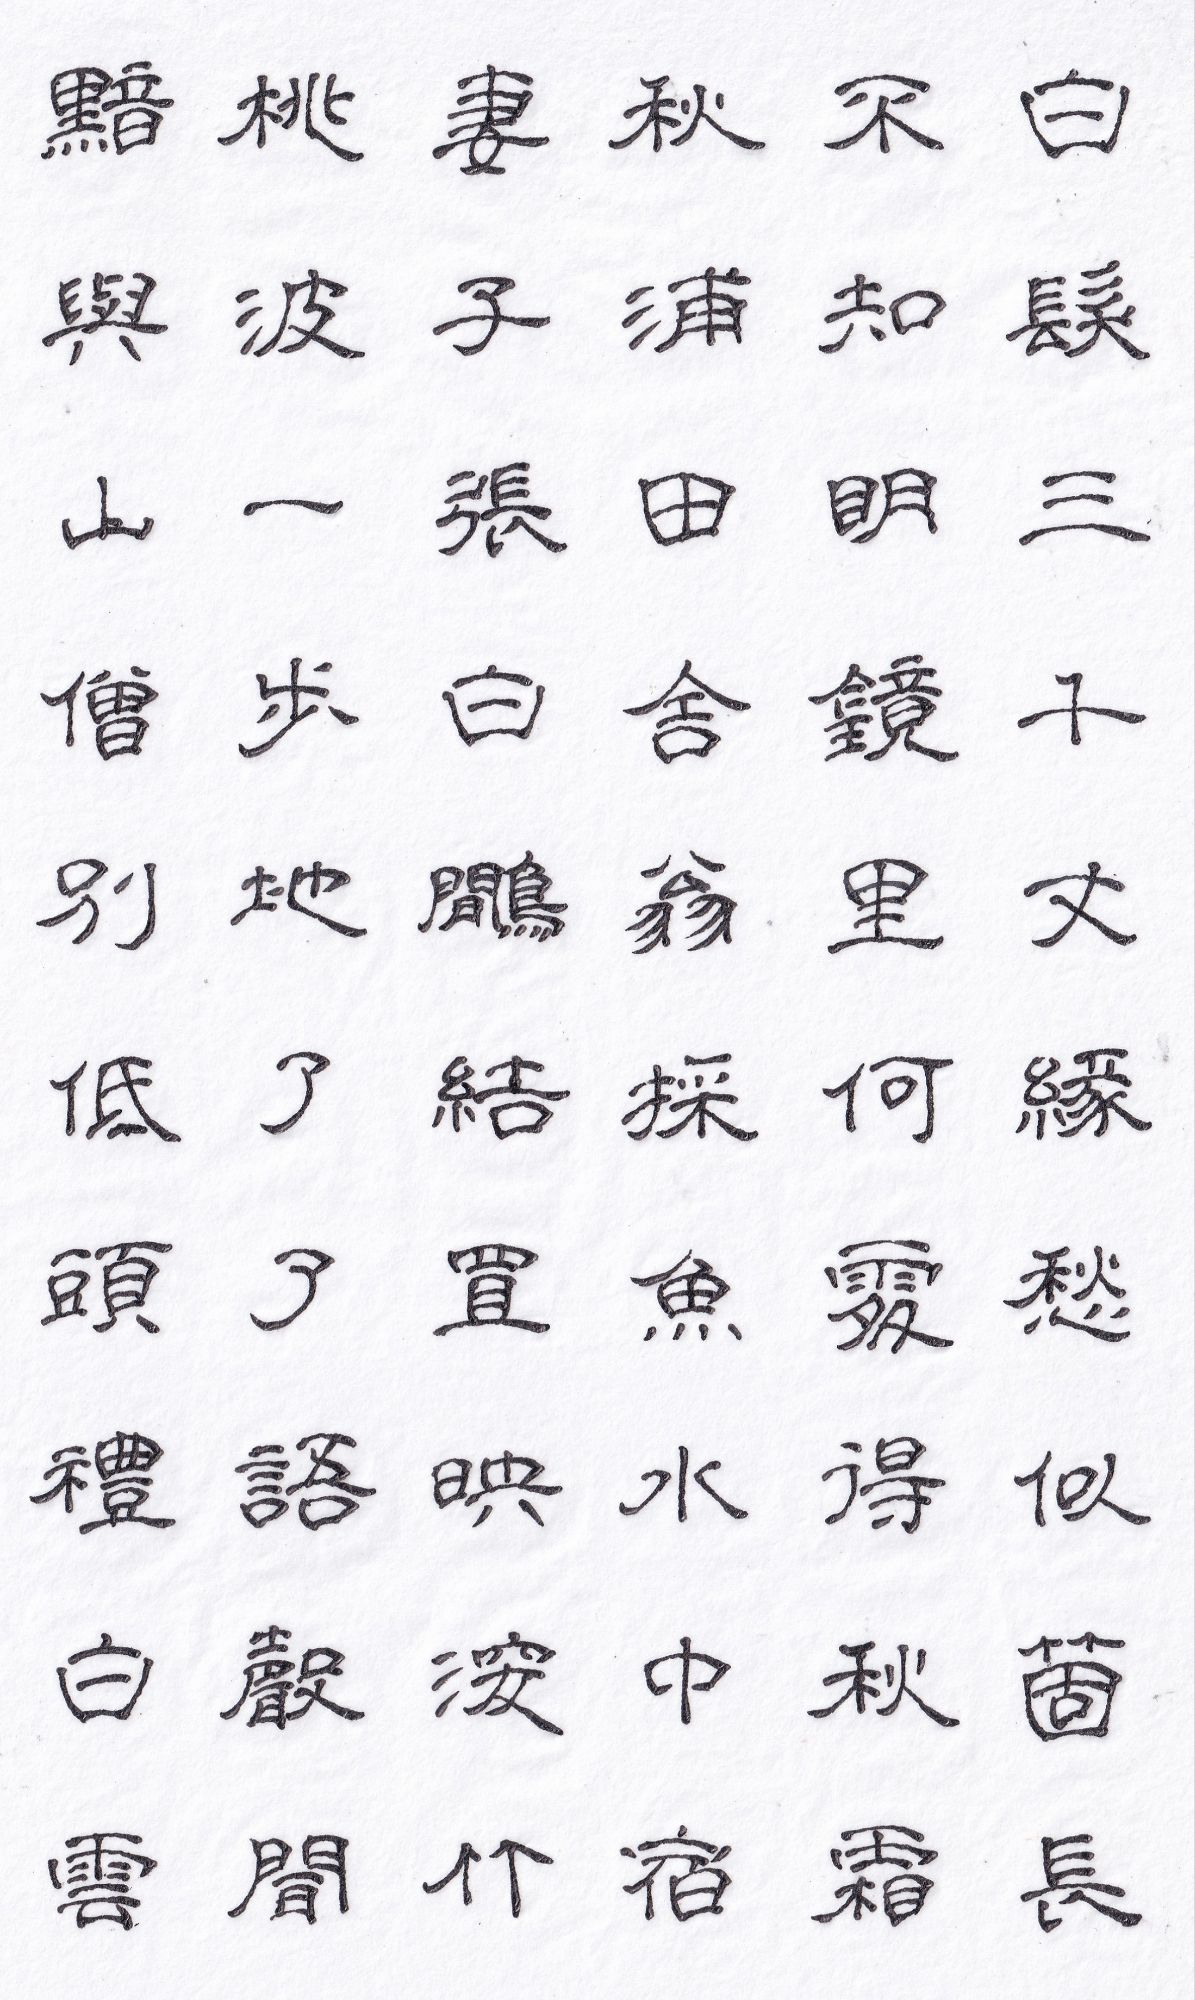 白髮三千丈緣愁似箇長
不知明鏡里何處得秋霜
秋浦田舍翁採魚水中宿
妻子張白鷴結罝映深竹
桃波一步地了了語聲聞
黯與山僧別低頭禮白雲